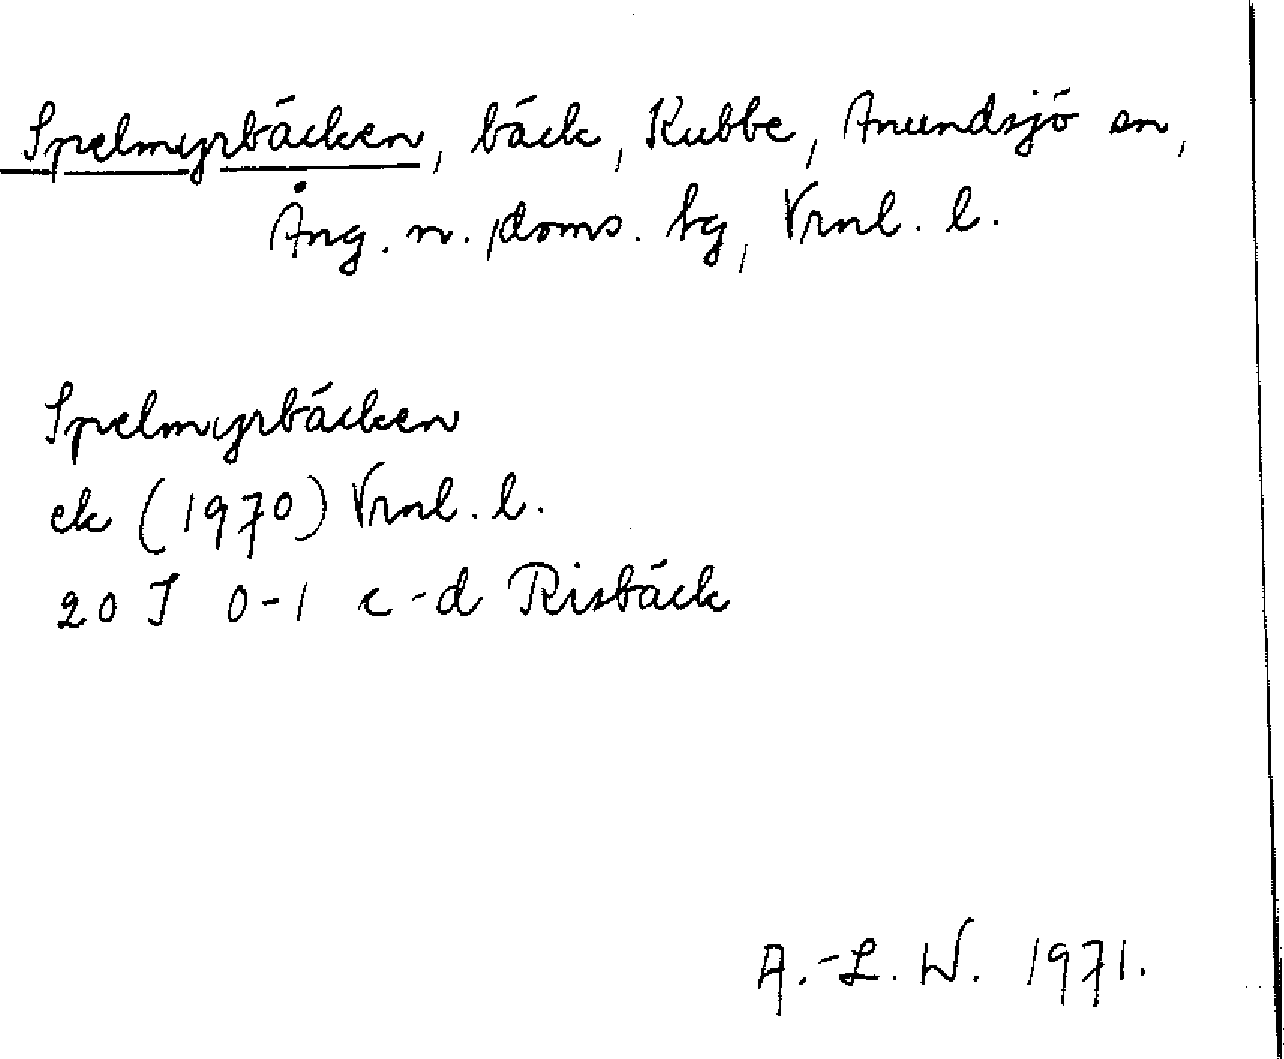 Spelmyrbäcken, bäck, Kubbe, Anundsjö sn,
Ång. n. doms. tg, Vrnl. l.
Spelmyrbäcken
ek (1970) Vrnl. l.
20 I 0-1 c-d Risbäck
A.-L. W. 1971.